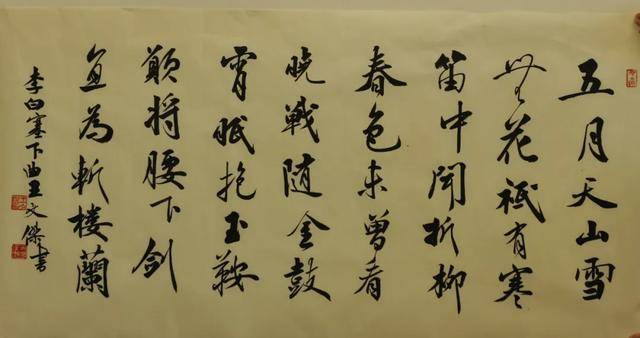 五月天山雪
無花祗有寒
笛中聞折柳
春色未曾看
曉戰随金鼓
宵眠抱玉鞍
願將腰下劍
直為斬樓蘭
李白塞下曲王文傑書